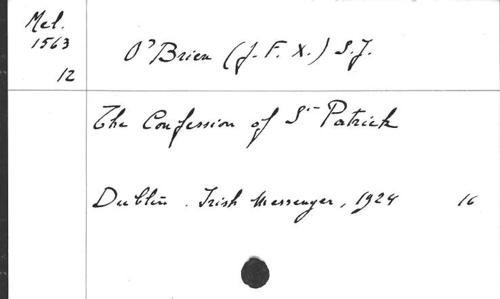 Mel.
1563
12
O'Brien (J. F. X.) S.J.
The Confession of St Patrick
Dublin. Irish Messenger, 1924 16